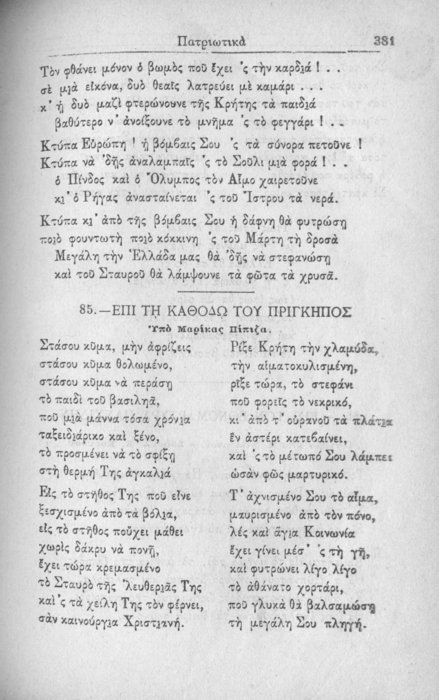 Πατριωτικὰ 381
Τὸν φθάνει μόνον ὁ βωμὸς ποῦ ἔχει ς τὴν καρδιά ! . .
σὲ μιὰ εἰκόνα, δυὸ θεαῖς λατρεύει μὲ καμάρι . . .
κ' ᾑ δυὸ μαζὶ φτερώνουνε τῆς Κρήτης τὰ παιδιὰ
βαθύτερο ν' ἀνοίξουνε τὸ μνῆμα ς τὸ φεγγάρι ! . .
Κτύπα Εὐρώπη ! ᾑ βόμβαις Σου ς τὰ σύνορα πετοῦνε !
Κτύπα νὰ 'δῇς ἀναλαμπαῖς ς τὸ Σοῦλι μιὰ φορά ! . .
ὁ Πίνδος καὶ ὁ Ὄλυμπος τὸν Αἷμο χαιρετοῦνε
κι' ὁ Ρήγας ἀνασταίνεται ς τοῦ Ἴστρου τὰ νερά.
Κτύπα κι' ἀπὸ τῆς βόμβαις Σου ἡ δάφνη θὰ φυτρώσῃ
ποιὸ φουντωτὴ ποιὸ κόκκινη ς τοῦ Μάρτη τὴ δροσὰ
Μεγάλη τὴν Ἑλλάδα μας θὰ 'δῇς νὰ στεφανώσῃ
καὶ τοῦ Σταυροῦ θὰ λάμψουνε τὰ φῶτα τὰ χρυσᾶ.
85.—ΕΠΙ ΤΗ ΚΑΘΟΔΩ ΤΟΥ ΠΡΙΓΚΗΠΟΣ
Ὑπὸ Μαρίκας Πίπιζα.
Στάσου κῦμα, μὴν ἀφρίζεις
στάσου κῦμα θολωμένο,
στάσου κῦμα νὰ περάσῃ
τὸ παιδὶ τοῦ βασιληᾶ,
ποῦ μιὰ μάννα τόσα χρόνια
ταξειδιάρικο καὶ ξένο,
τὸ προσμένει νὰ τὸ σφίξῃ
στὴ θερμή Της ἀγκαλιά
Εἰς τὸ στῆθος Της ποῦ εἶνε
ξεσχισμένο ἀπὸ τὰ βόλια,
εἰς τὸ στῆθος ποὔχει μάθει
χωρὶς δάκρυ νὰ πονῇ,
ἔχει τώρα κρεμασμένο
τὸ Σταυρὸ τῆς 'λευθεριᾶς Της
καὶ ς τὰ χείλη Της τὸν φέρνει,
σὰν καινούργια Χριστιανή.
Ρίξε Κρήτη τὴν χλαμύδα,
τὴν αἱματοκυλισμένη,
ρίξε τώρα, τὸ στεφάνι
ποῦ φορεῖς τὸ νεκρικό,
κι' ἀπὸ τ' οὐρανοῦ τὰ πλάτια
ἓν ἀστέρι κατεβαίνει,
καὶ ς τὸ μέτωπό Σου λάμπει
ὡσὰν φῶς μαρτυρικό.
Τ' ἀχνισμένο Σου τὸ αἷμα,
μαυρισμένο ἀπὸ τὸν πόνο,
λὲς καὶ ἅγια Κοινωνία
ἔχει γίνει μέσ' ς τὴ γῆ,
καὶ φυτρώνει λίγο λίγο
τὸ ἀθάνατο χορτάρι,
ποῦ γλυκὰ θὰ βαλσαμώσῃ
τὴ μεγάλη Σου πληγή.